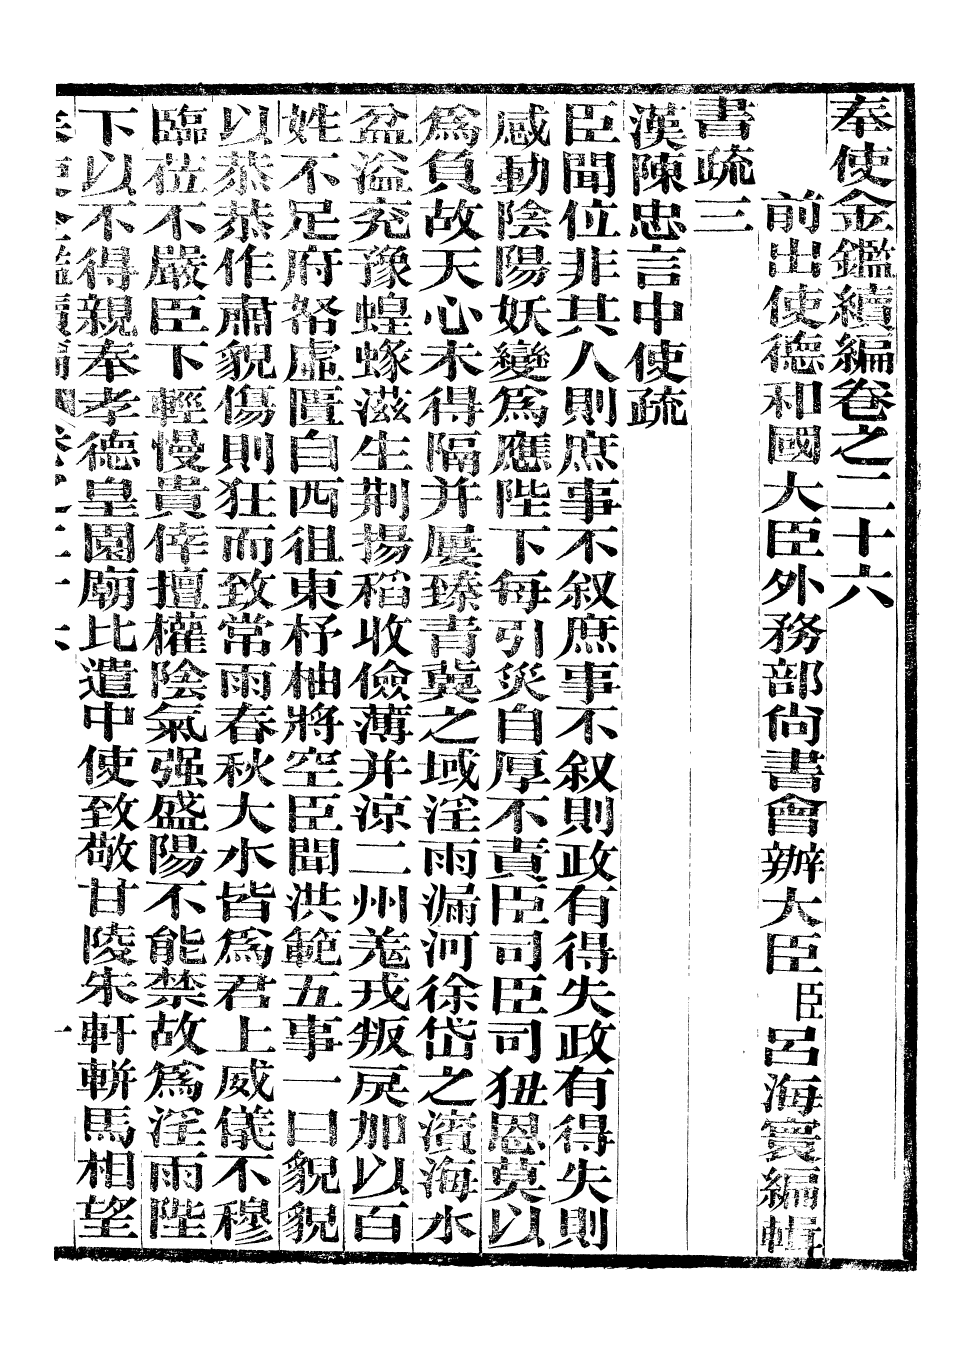 奉使金鑑續編卷之二十六
前出使德和國大臣外務部尚書會辦大臣臣呂海寰編輯
書疏三
漢陳忠言中使疏
臣聞位非其人則庶事不叙庶事不叙則政有得失政有得失則
感動陰陽妖變爲應陛下每引災自厚不責臣司臣司狃恩莫以
爲負故天心未得隔并屢臻青冀之域淫雨漏河徐岱之濱海水
盆溢兖豫蝗蝝滋生荆揚稻收儉薄并涼二州羗戎叛戾加以百
姓不足府帑虛匱自西徂東杼柚將空臣聞洪範五事一曰貌貌
以恭恭作肅貌傷則狂而致常雨春秋大水皆爲君上威儀不穆
臨莅不嚴臣下輕慢貴倖擅權陰氣强盛陽不能禁故爲淫雨陛
下以不得親奉孝德皇園廟比遣中使致敬甘陵朱軒軿馬相望
奉使金鑑續編 卷之二十六 一